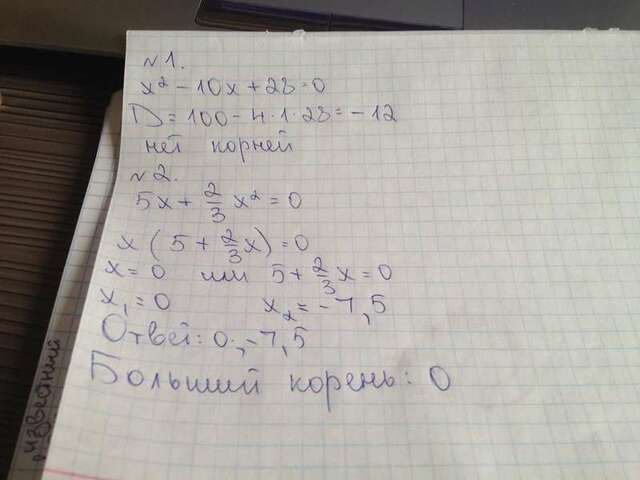 №1.
x² - 10x + 28 = 0
D = 100 - 4·1·28 = -12
нет корней
№2.
5x + 2/3 x² = 0
x (5 + 2/3 x) = 0
x = 0 или 5 + 2/3 x = 0
x₁ = 0 x₂ = -7,5
Ответ: 0; -7,5
Больший корень: 0